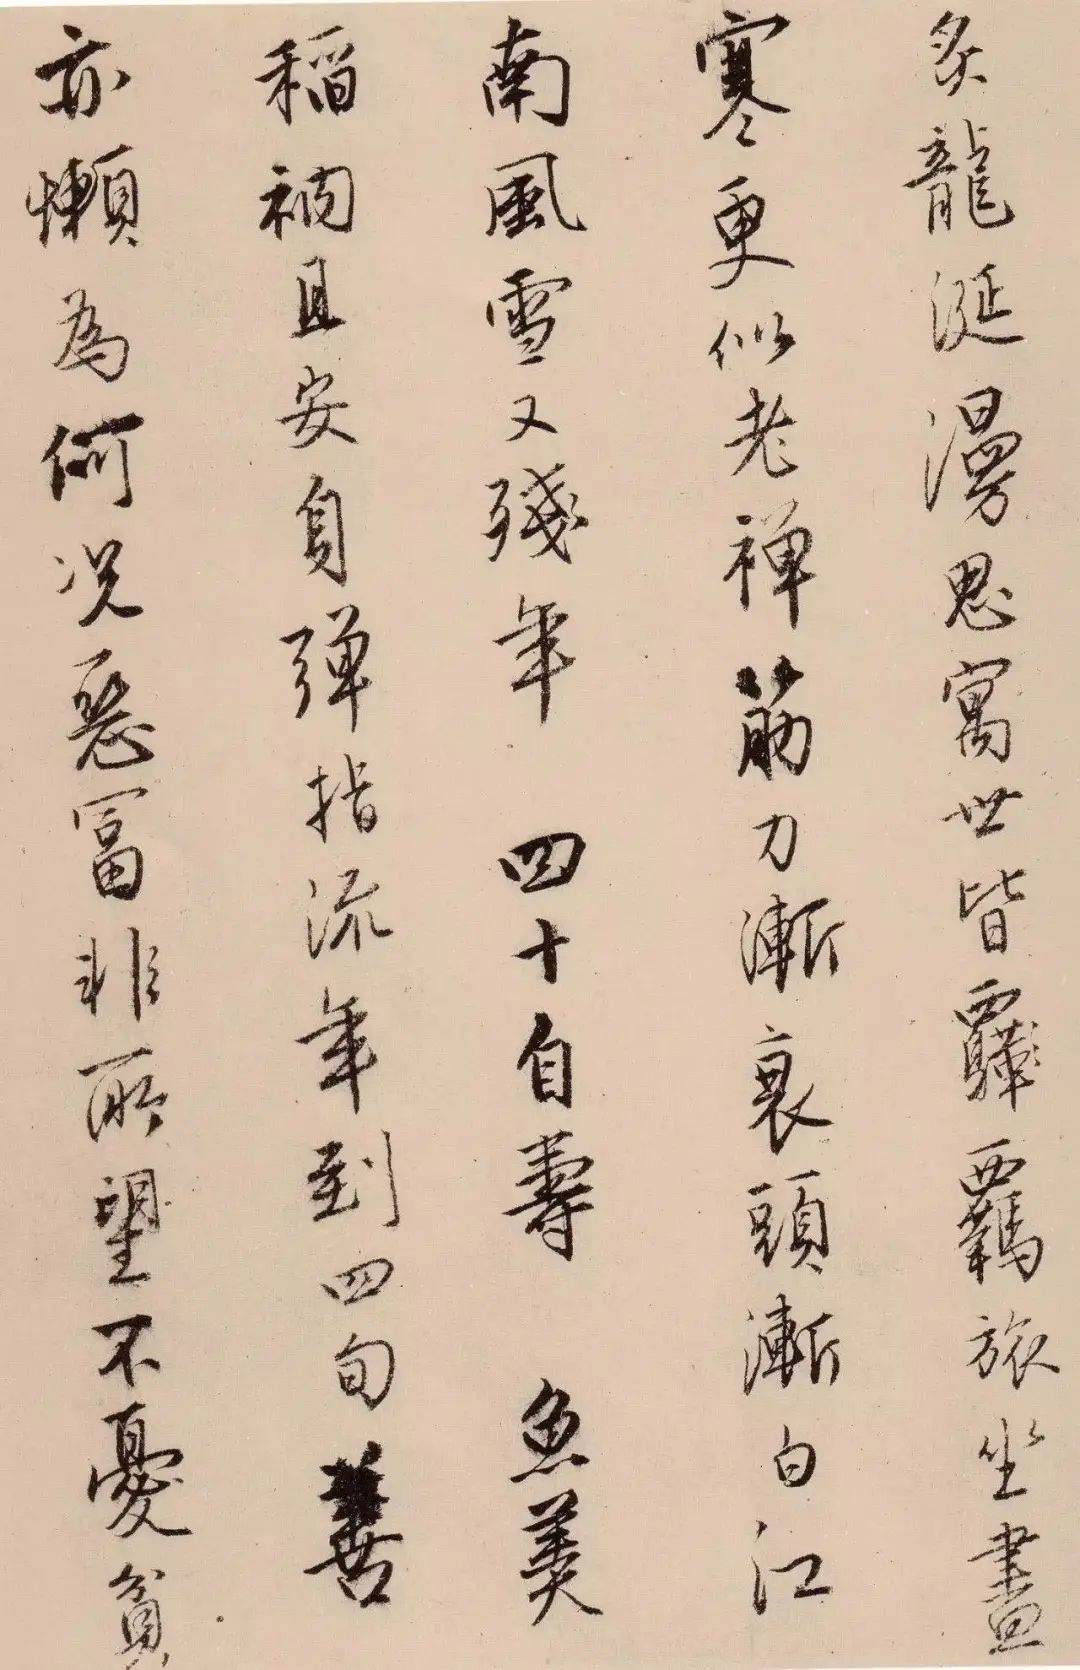 炙龍涎漫思寓世皆羈羈旅坐盡
寒更似老禪筋力漸衰頭漸白江
南風雪又殘年 四十自壽 魚羹
稻衲且安身彈指流年到四旬善
亦懶為何況惡富非所望不憂貧